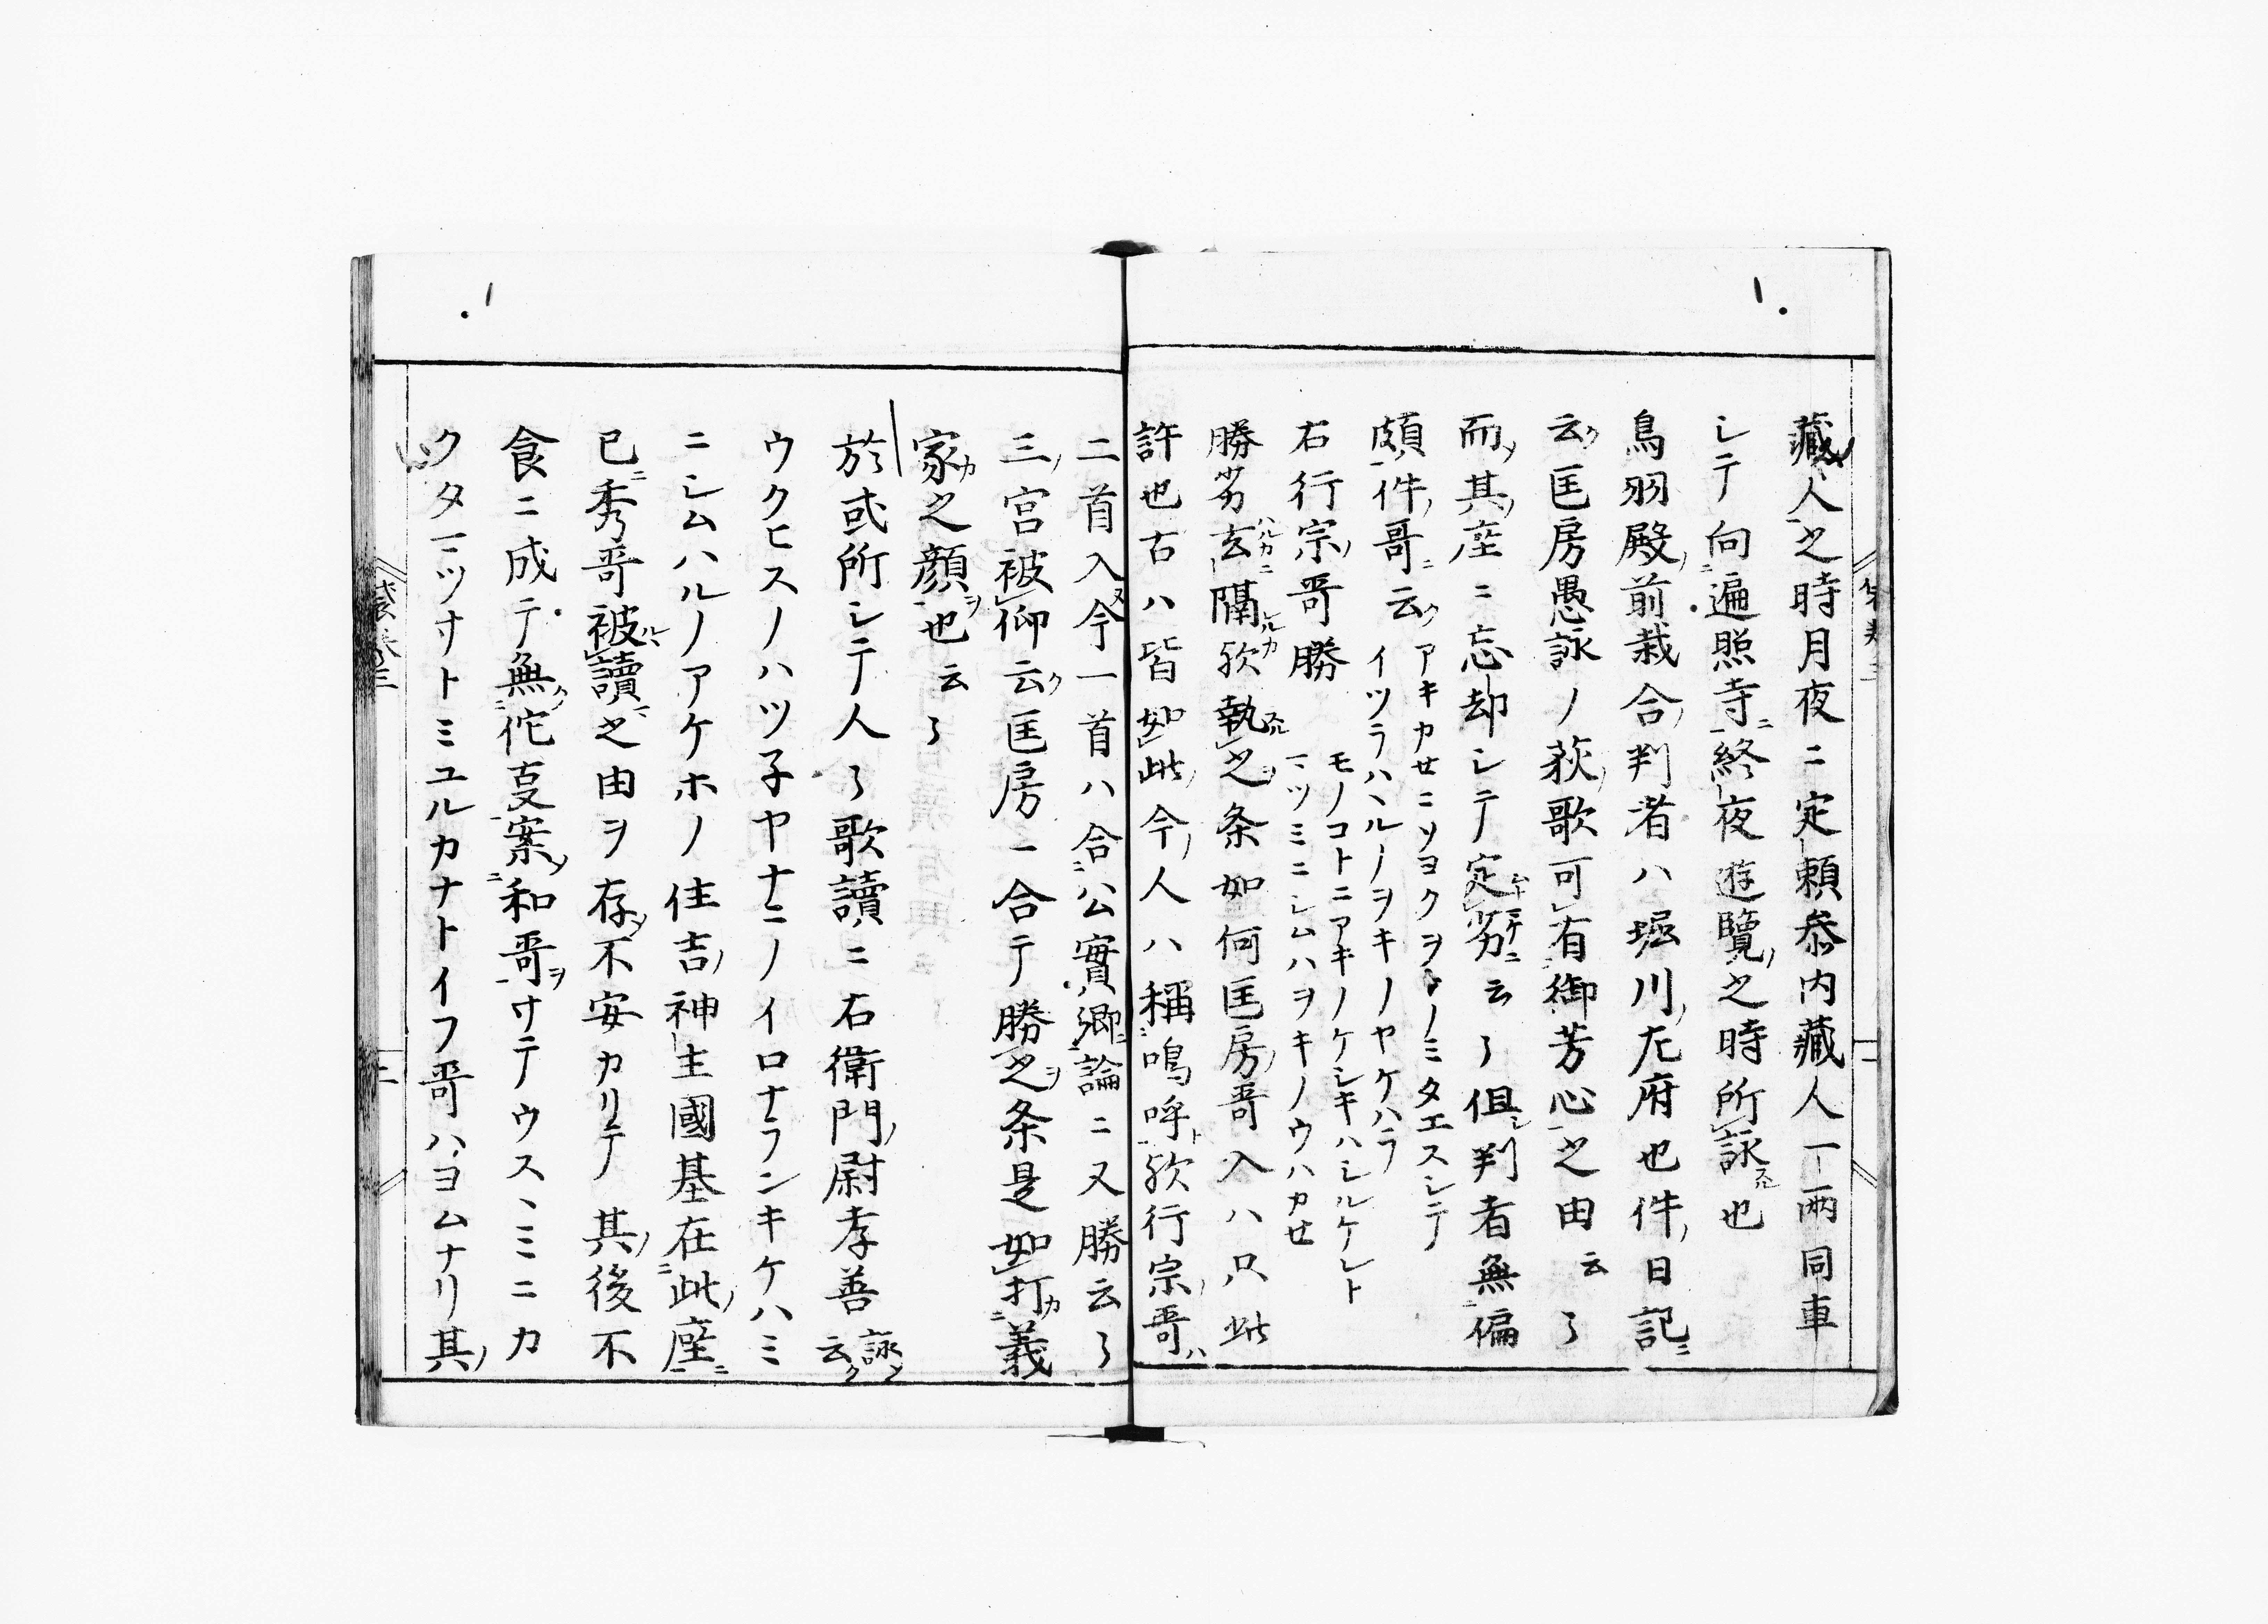 藏人之時月夜ニ定頼参内藏人一両同車
シテ向遍照寺終夜遊覽之時所詠也
鳥羽殿前栽合判者ハ堀川左府也件日記
云匡房愚詠ノ萩歌可有御芳心之由云々
而其座ニ忘却シテ定劣云々但判者無偏
頗件哥云
アキカセニソヨクヲハノミタエスシテ
イツラハハルノヲキノヤケハラ
右行宗哥勝
モノコトニアキノケシキハシルケレト
マツミニシムハヲキノウハカセ
勝劣玄隔欤執之条如何匡房哥入ハ只此
許也古ハ皆如此今人ハ稱嗚呼欤行宗哥ハ
二首入今一首ハ合公實卿論ニ又勝云々
三宮被仰云匡房ニ合テ勝之条是如打義
家之顔也云々
於或所シテ人々歌讀ニ右衛門尉孝善詠云
ウクヒスノハツ子ヤナニノイロナランキケハミ
ニシムハルノアケホノ住吉神主國基在此座
已秀哥被讀之由ヲ存不安カリテ其後不
食ニ成テ無佗叓案和哥サテウスヽミニカ
クタマツサトミユルカナトイフ哥ハヨムナリ其